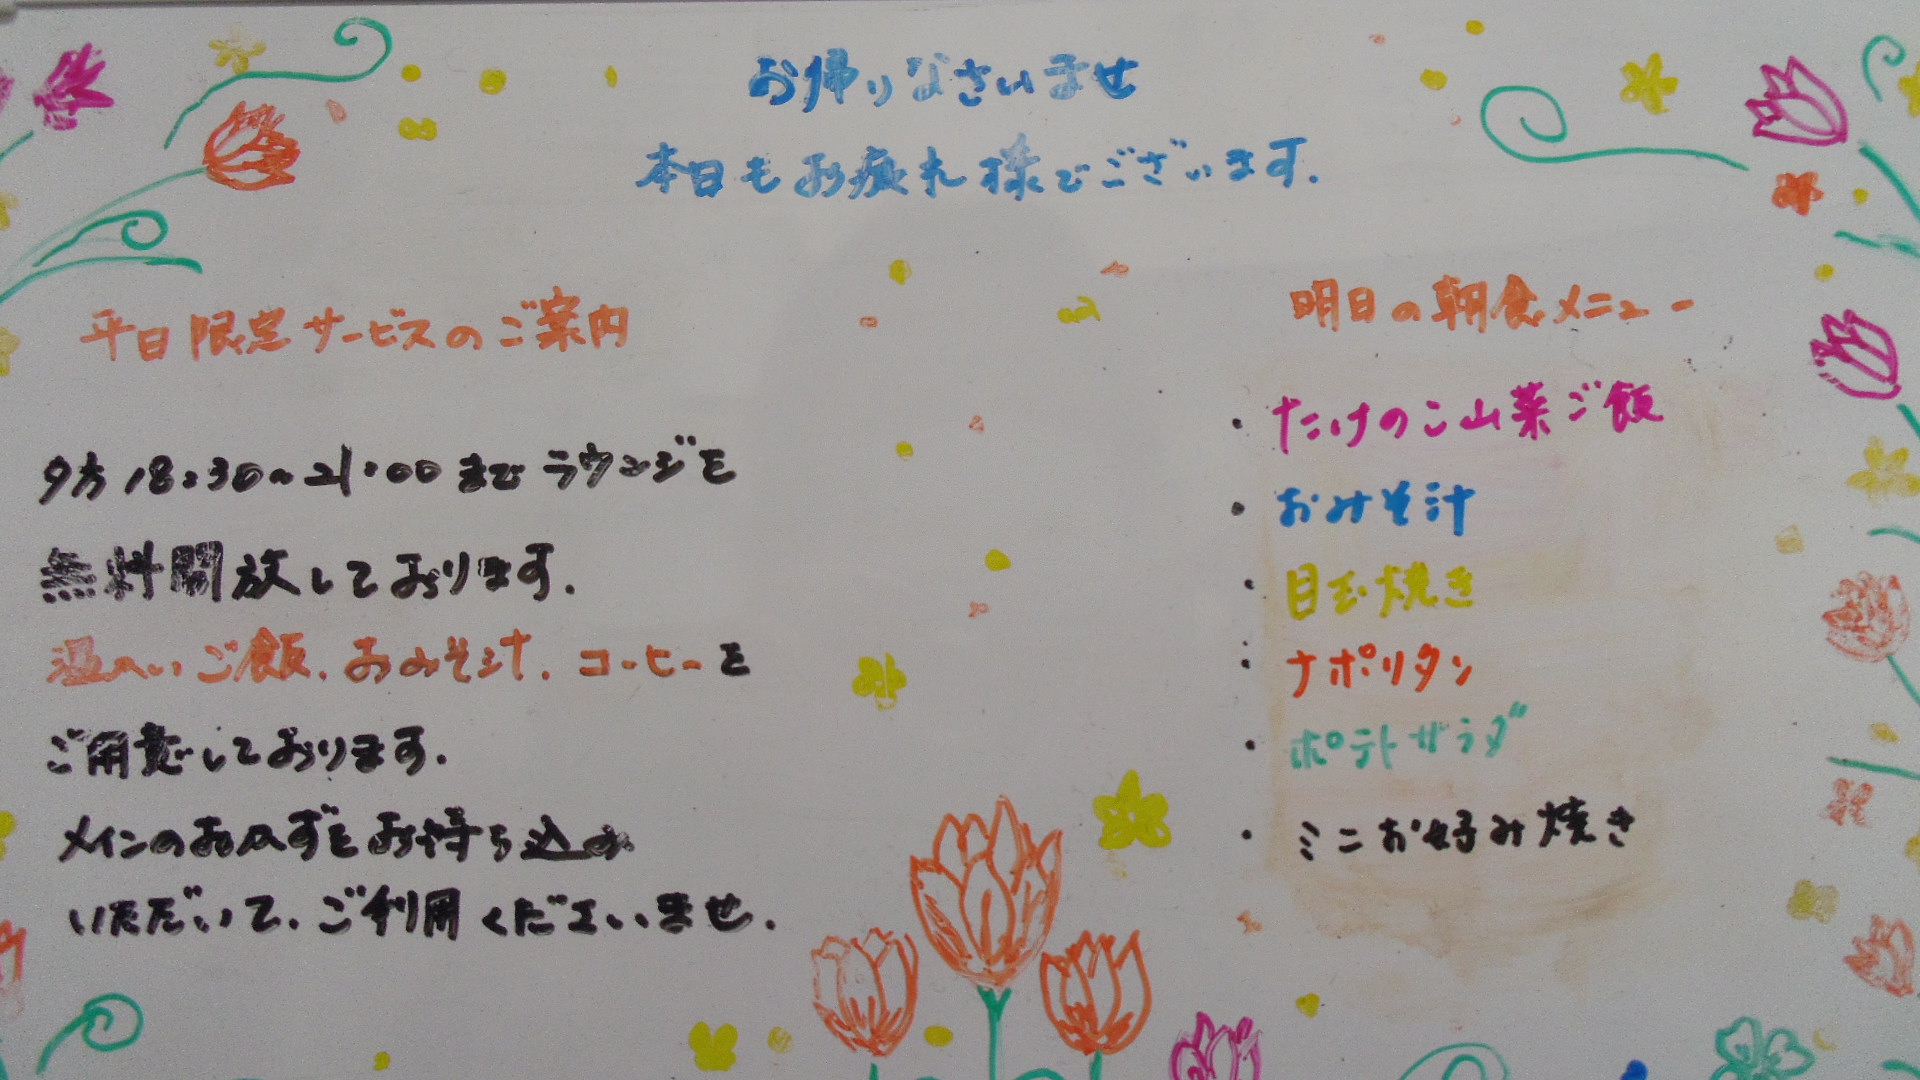 お帰りなさいませ
本日もお疲れ様でございます.
平日限定サービスのご案内
夕方18:30〜21:00までラウンジを
無料開放しております.
温かいご飯.おみそ汁.コーヒーを
ご用意しております.
メインのおかずをお持ち込み
いただいて.ご利用くださいませ.
明日の朝食メニュー
・たけのこ山菜ご飯
・おみそ汁
・目玉焼き
・ナポリタン
・ポテトサラダ
・ミニお好み焼き